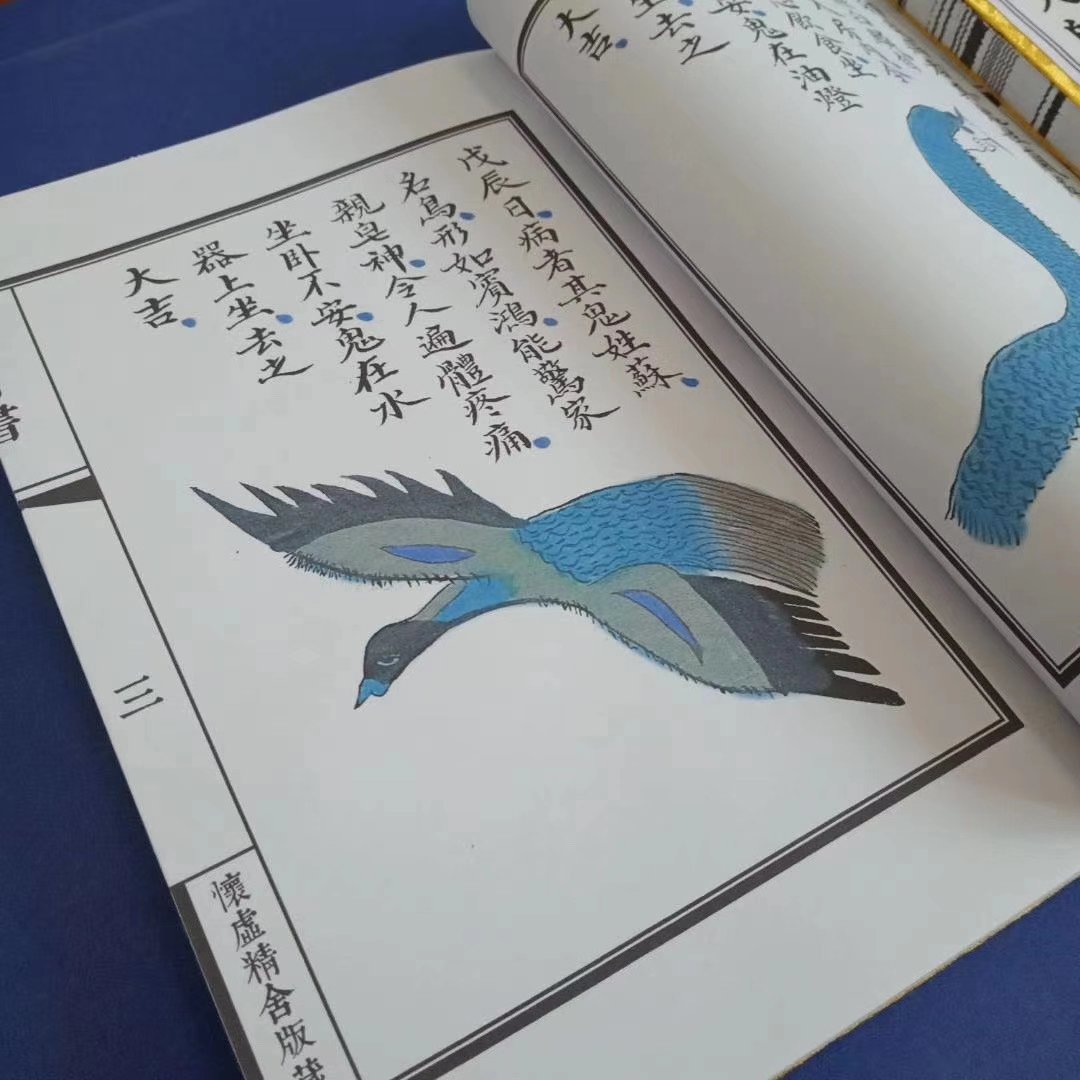 飲食。坐
安。鬼在油燈
坐。去之
大吉。
戊辰日。病者其鬼姓蘇。
名鳥。形如賓鴻。能驚家
親皂神。令人遍體疼痛。
坐卧不安。鬼在水
器上坐。去之
大吉。
書
三
懷虛精舍版